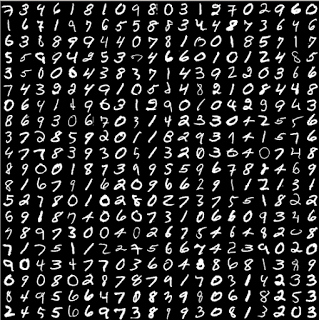 7 3 4 6 1 8 1 0 9 8 0 3 1 2 7 0 2 9 6 0
1 6 7 1 9 7 6 5 5 8 8 3 4 4 8 7 3 6 4 6
6 3 8 8 9 9 4 4 0 7 8 1 0 0 1 8 5 7 1 7
5 5 9 9 4 2 5 3 7 4 6 6 0 1 0 1 2 4 8 5
3 5 0 0 6 4 3 8 3 7 1 4 3 9 2 2 0 3 6 6
7 4 3 9 2 4 4 9 1 0 5 2 4 8 2 1 0 8 4 8
0 6 4 1 4 9 6 3 1 2 9 0 1 0 4 2 9 9 4 3
8 6 9 3 0 6 7 0 3 1 4 2 3 3 0 4 2 5 5 6
3 7 2 8 5 9 2 0 1 1 8 2 9 3 1 4 1 5 7 6
4 7 7 8 3 9 3 0 5 1 3 2 0 3 6 4 0 7 4 8
8 9 0 0 1 8 7 3 9 9 5 5 9 6 7 8 8 4 6 9
8 1 6 7 9 1 6 2 0 9 6 6 2 9 1 1 2 1 3 1
5 2 7 8 0 1 0 2 8 0 2 7 3 7 5 5 1 8 2 2
6 9 1 8 7 4 0 6 0 7 3 1 0 6 6 0 9 3 4 6
7 8 9 7 3 0 0 4 0 2 1 7 5 4 6 4 8 2 0 8
7 1 7 5 1 1 2 2 7 5 6 6 7 4 2 3 9 0 2 0
9 0 4 3 4 7 7 0 3 6 0 4 8 8 6 8 1 3 8 9
0 9 0 8 0 2 8 7 8 7 9 7 7 0 3 1 4 2 3 3
8 4 9 5 6 6 4 7 0 8 3 9 8 0 6 1 8 2 5 3
2 4 5 5 6 9 7 3 8 7 9 1 9 3 0 8 2 2 4 0